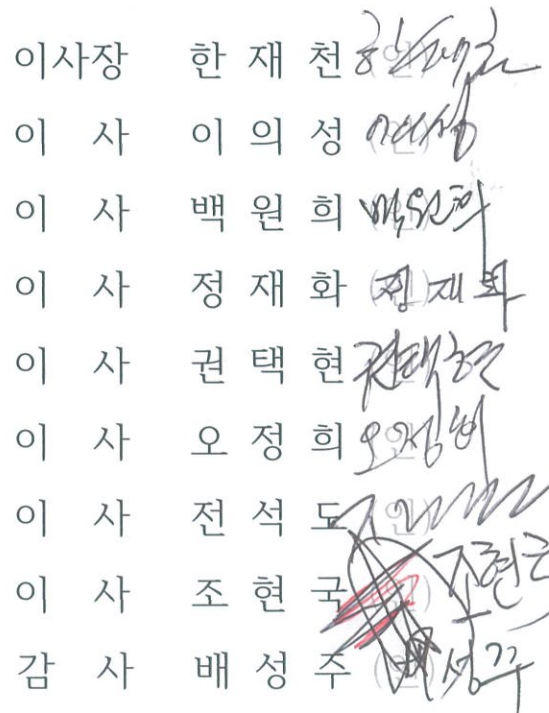 이사장 한 재 천 (인) 한재천
이 사 이 의 성 (인)
이 사 백 원 희 (인) 백원희
이 사 정 재 화 (인) 정재화
이 사 권 택 현 (인) 권택현
이 사 오 정 희 (인) 오정희
이 사 전 석 도 (인)
이 사 조 현 국 (인) 조현국
감 사 배 성 주 (인) 배성주